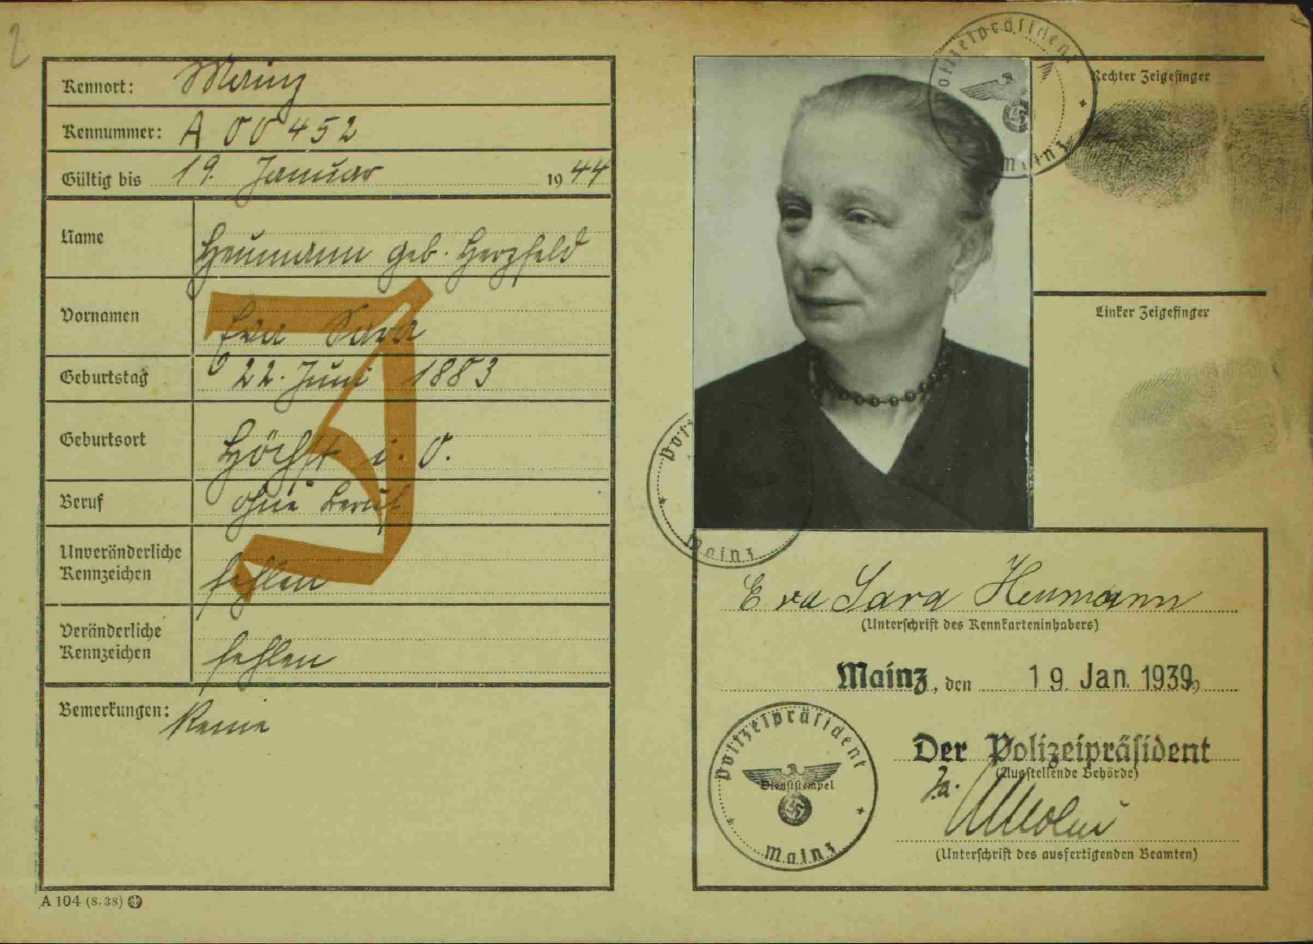 2
Kennort: Mainz
Kennummer: A 00452
Gültig bis 19. Januar 1944
Name Heumann geb. Herzfeld
Vornamen Eva Sara
Geburtstag 22. Juni 1883
Geburtsort Höchst i. O.
Beruf ohne Beruf
Unveränderliche
Kennzeichen fehlen
Veränderliche
Kennzeichen fehlen
Bemerkungen: Keine
J
A 104 (8. 38)
Polizeipräsident
Mainz
Rechter Zeigefinger
Linker Zeigefinger
Poliz
Mainz
Eva Sara Heumann
(Unterschrift des Kennkarteninhabers)
Mainz, den 19. Jan. 1939
Polizeipräsident
Dienststempel
Mainz
Der Polizeipräsident
(Ausstellende Behörde)
(Unterschrift des ausfertigenden Beamten)